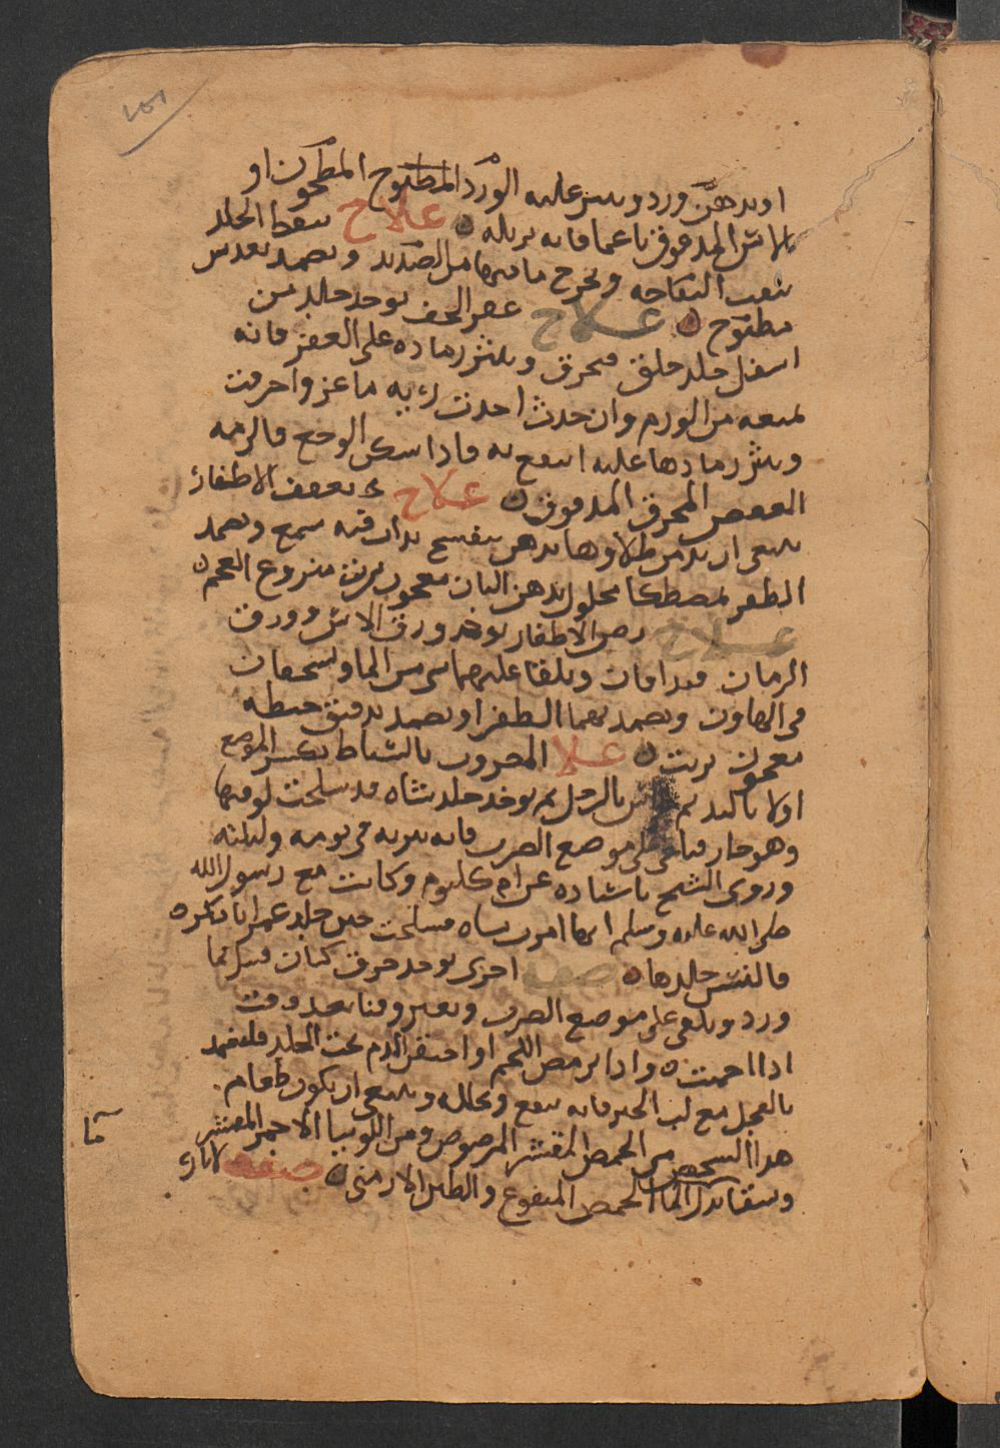 اوبدهن ورد وينثر عليه الورد المطبوخ المطحون او
بالاس المدقوق ناعما فانه يزيله ه علاج تنفط الجلد
تنقب النفاخه ويخرج ما فيها من الصديد ويضمد بعدس
مطبوخ ه علاج عقر الخف يوخد جلد من
اسفل جلد خلق فيحرق وينثر رماده على العقر فانه
يمنعه من الورم وان حدث احدث ريه ماعز واحرقت
وينثر رمادها عليه انتفع به فاذا سكن الوجع فالزمه
العفص المحرق المدقوق ه علاج تعقف الاظفار
ينبغي ان يدمن طلاوها بدهن بنفسج مداف فيه شمع ويضمد
الظفر بمصطكا محلول بدهن البان معجون بزيت منزوع العجم ه
علاج رض الاظفار يوخد ورق الاس وورق
الرمان فيدافان ويلقا عليهما شي من الما ويسحقان
في الهاون ويضمد بهما الظفر او يضمد بدقيق حنطه
معجون بزيت ه علا المضروب بالسياط يكبس الموضع
اولا باليد ثم بالرجل ثم يوخد جلد شاه قد سلخت لوقتها
وهو حار فيلقى على موضع الضرب فانه يبريه في يومه وليلته
وروى الشيخ باسناده عن ام كلثوم وكانت مع رسول الله
صلى الله عليه وسلم انها امرت بشاه فسلخت حين جلد عمر ابا بكره
فالبس جلدها ه صفه اخرى يوخد خرق كتان فتبل بما
ورد ويلقى على موضع الضرب وتغير وقتا بعد وقت
اذا احميت ه واذا يرض اللحم او احتقن الدم تحت الجلد فليضمد
بالفجل مع لب الخبز فانه ينفع ويحلله وينبغي ان يكون طعام
هذا الشخص من الحمص المقشر المرضوض ومن اللوبيا الاحمر المقشر
ويسقا بدل الما الحمص المنقوع والطين الارمني ه صفه لاثار
ما